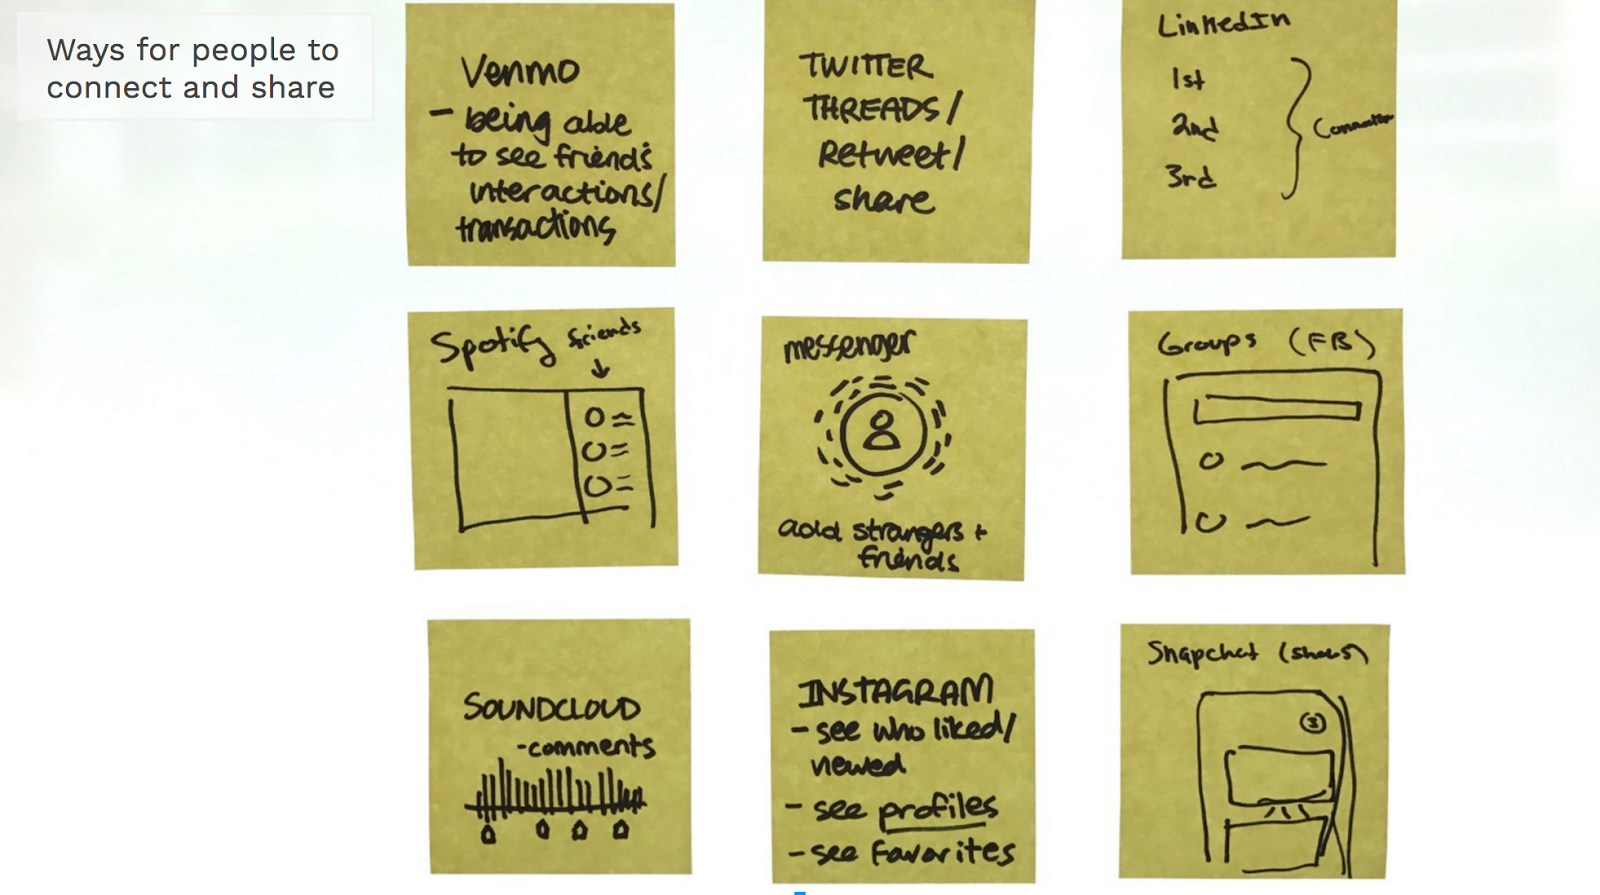 Ways for people to
connect and share
Venmo
- being able
to see friend's
interactions/
transactions
TWITTER
THREADS/
Retweet/
share
LinkedIn
1st
2nd
3rd
Spotify friends
messenger
add strangers +
friends
Groups (FB)
SOUNDCLOUD
-comments
INSTAGRAM
- see who liked/
viewed
- see profiles
- see favorites
Snapchat